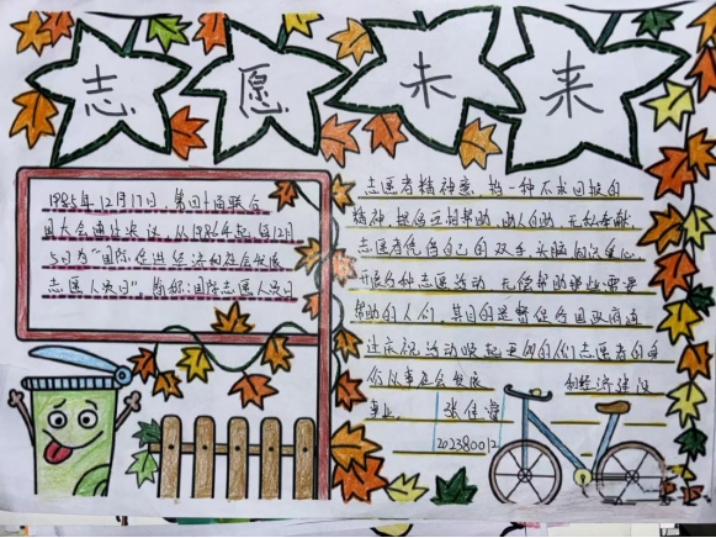 志愿未来
1985年12月17日，第四十届联合
国大会通过决议，从1986年起，每12月
5日为“国际促进经济和社会发展
志愿人员日”，简称：国际志愿人员日
志愿者精神意，指一种不求回报的
精神，提倡互相帮助、助人自助、无私奉献
志愿者凭借自己的双手、头脑、知识、爱心
开展各种志愿活动，无偿帮助那些需要
帮助的人们，其目的是督促各国政府通
过庆祝活动唤起更多的人们志愿者的身
份从事社会发展
和经济建设
事业。
张佳
202380012